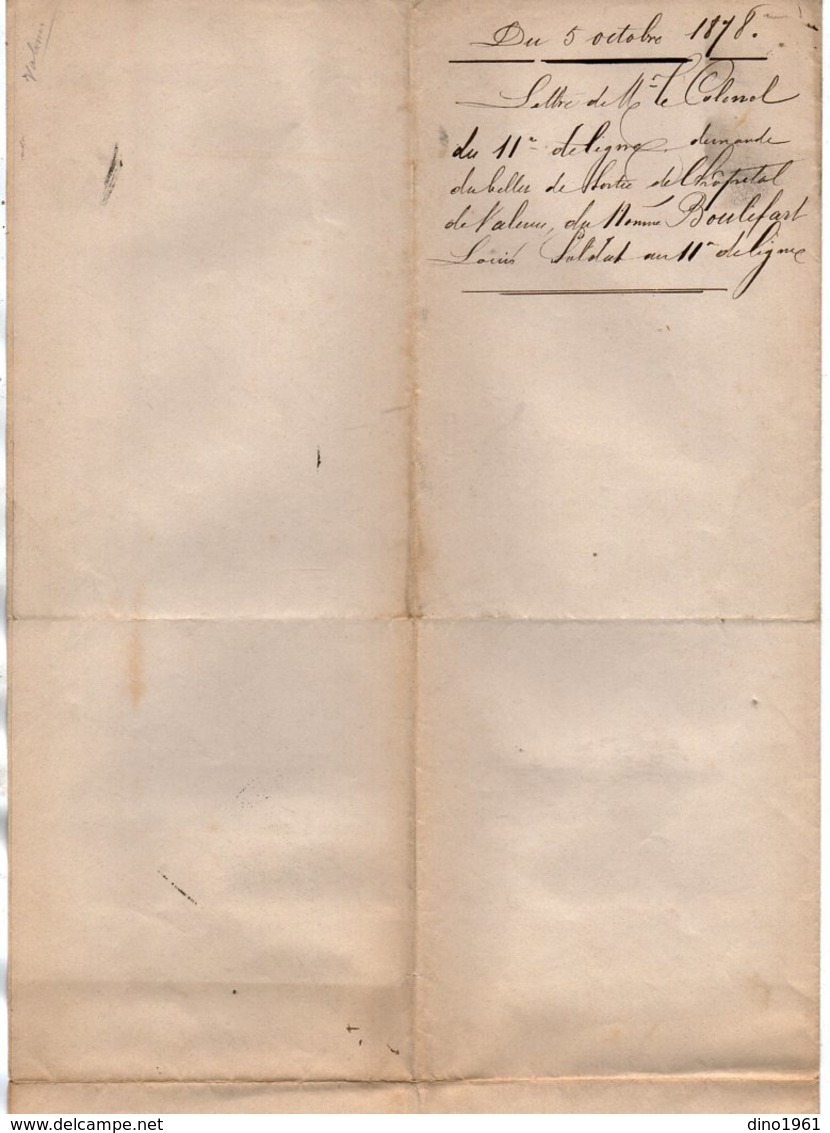 Valence
Du 5 octobre 1878.
Lettre de Mr le Colonel
du 11e de ligne, demande
du billet de Sortie de l'hôpital
de Valence, du Nommé Boulefart
Louis Soldat au 11e de ligne
www.delcampe.net
dino1961